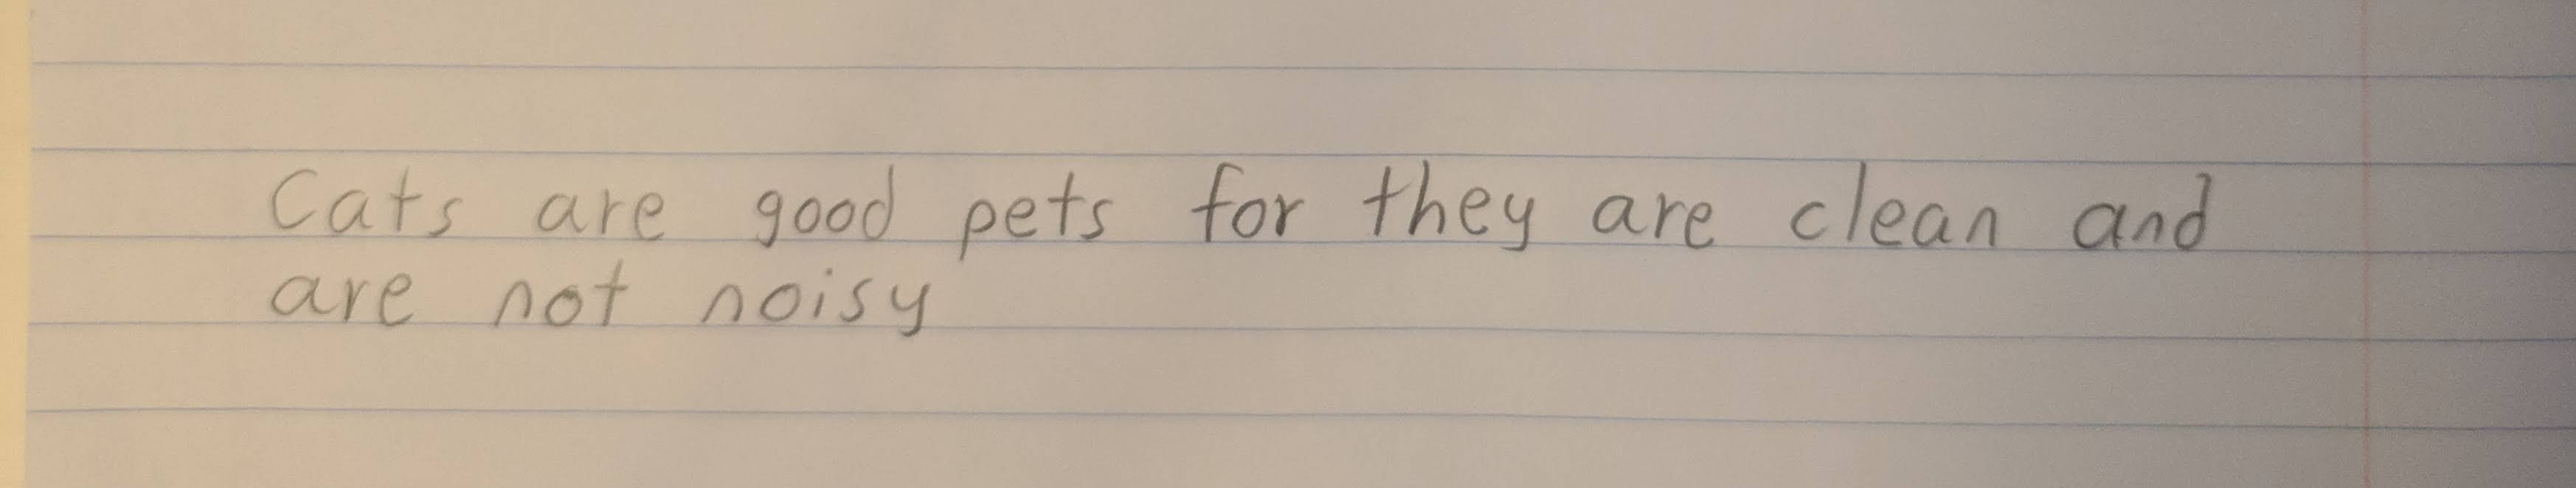 Cats are good pets for they are clean and
are not noisy